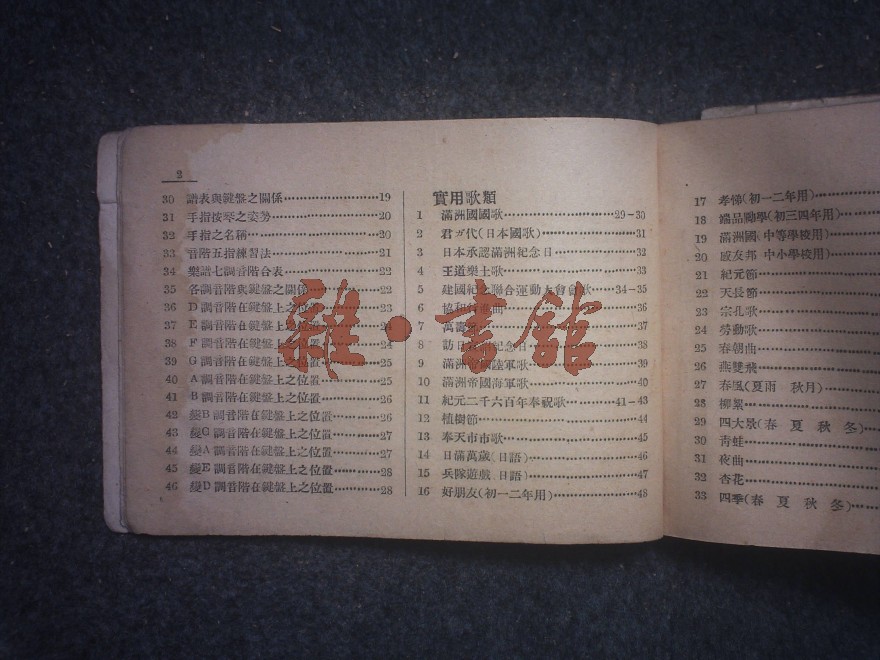 2
30 譜表與鍵盤之關係……………………19
31 手指按琴之姿勢……………………20
32 手指之名稱……………………20
33 音階五指練習法……………………21
34 樂譜七調音階合表……………………22
35 各調音階與鍵盤之關係……………………22
36 D調音階在鍵盤上之位置……………23
37 E調音階在鍵盤上之位置……………
38 F調音階在鍵盤上之位置……………24
39 G調音階在鍵盤上之位置……………25
40 A調音階在鍵盤上之位置……………25
41 B調音階在鍵盤上之位置……………26
42 變B調音階在鍵盤上之位置…………26
43 變G調音階在鍵盤上之位置…………27
44 變A調音階在鍵盤上之位置…………27
45 變E調音階在鍵盤上之位置…………28
46 變D調音階在鍵盤上之位置…………28
實用歌類
1 滿洲國國歌……………………29-30
2 君ガ代(日本國歌)……………………31
3 日本承認滿洲紀念日……………………32
4 王道樂土歌……………………33
5 建國紀念聯合運動大會會歌……34-35
6 協和進曲……………………36
7 萬壽……………………37
8 訪日紀念日……………………38
9 滿洲帝國陸軍歌……………………39
10 滿洲帝國海軍歌……………………40
11 紀元二千六百年奉祝歌…………41-43
12 植樹節……………………44
13 奉天市市歌……………………45
14 日滿萬歲(日語)……………………46
15 兵隊遊戲(日語)……………………47
16 好朋友(初一二年用)……………………48
17 孝悌(初一二年用)……………
18 端品勵學(初三四年用)……………
19 滿洲國(中等學校用)……………
20 盛友邦(中小學校用)……………
21 紀元節……………
22 天長節……………
23 宗孔歌……………
24 勞動歌……………
25 春朝曲……………
26 燕雙飛……………
27 春風(夏雨 秋月)……………
28 柳絮……………
29 四大景(春 夏 秋 冬)……
30 青蛙……………
31 夜曲……………
32 杏花……………
33 四季(春 夏 秋 冬)……
雜·書舘